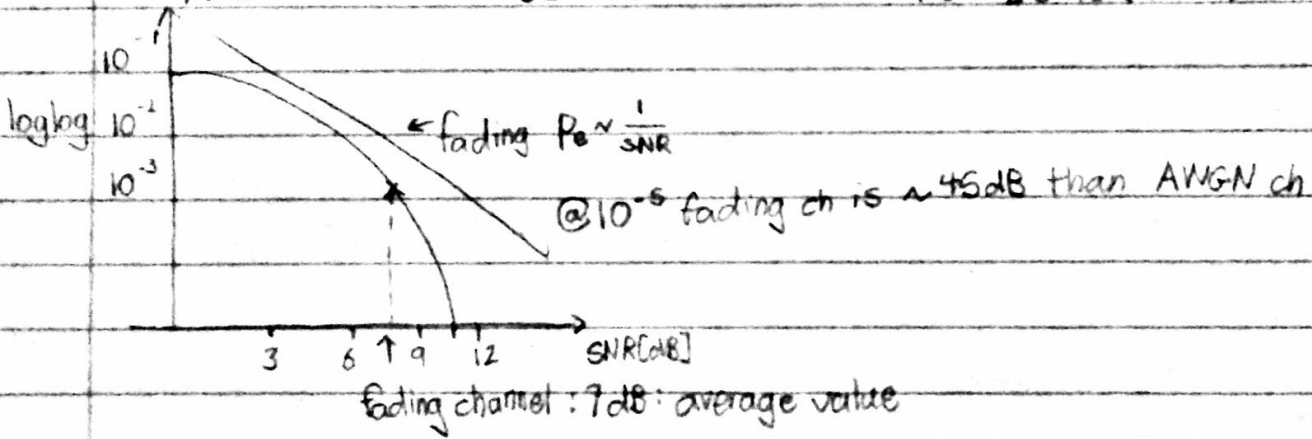 10⁻¹
loglog 10⁻²
← fading Pe ~ 1/SNR
10⁻³
@10⁻⁵ fading ch is ~45dB than AWGN ch
3 6 ↑ 9 12 SNR[dB]
fading channel : 7dB : average value